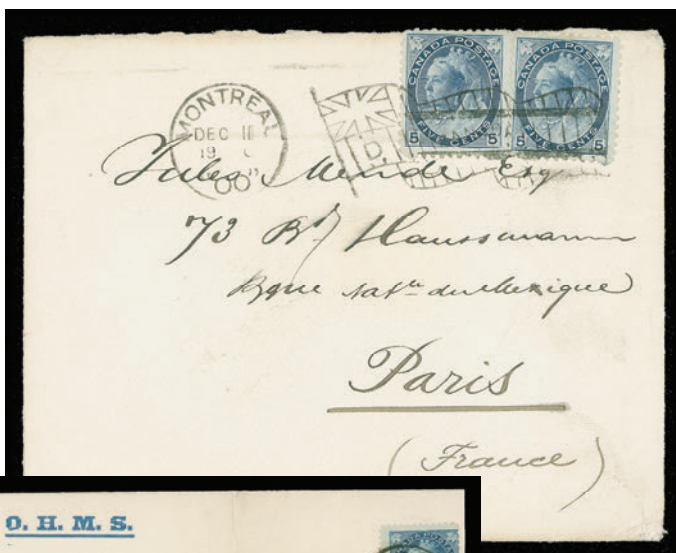 CANADA POSTAGE
FIVE CENTS
5 5
CANADA POSTAGE
FIVE CENTS
5 5
MONTREAL
DEC 11
19
00
D.
Jules Meride Esq
73 Bd Haussmann
Bque Natle du Mexique
Paris
(France)
O. H. M. S.
CANADA POS